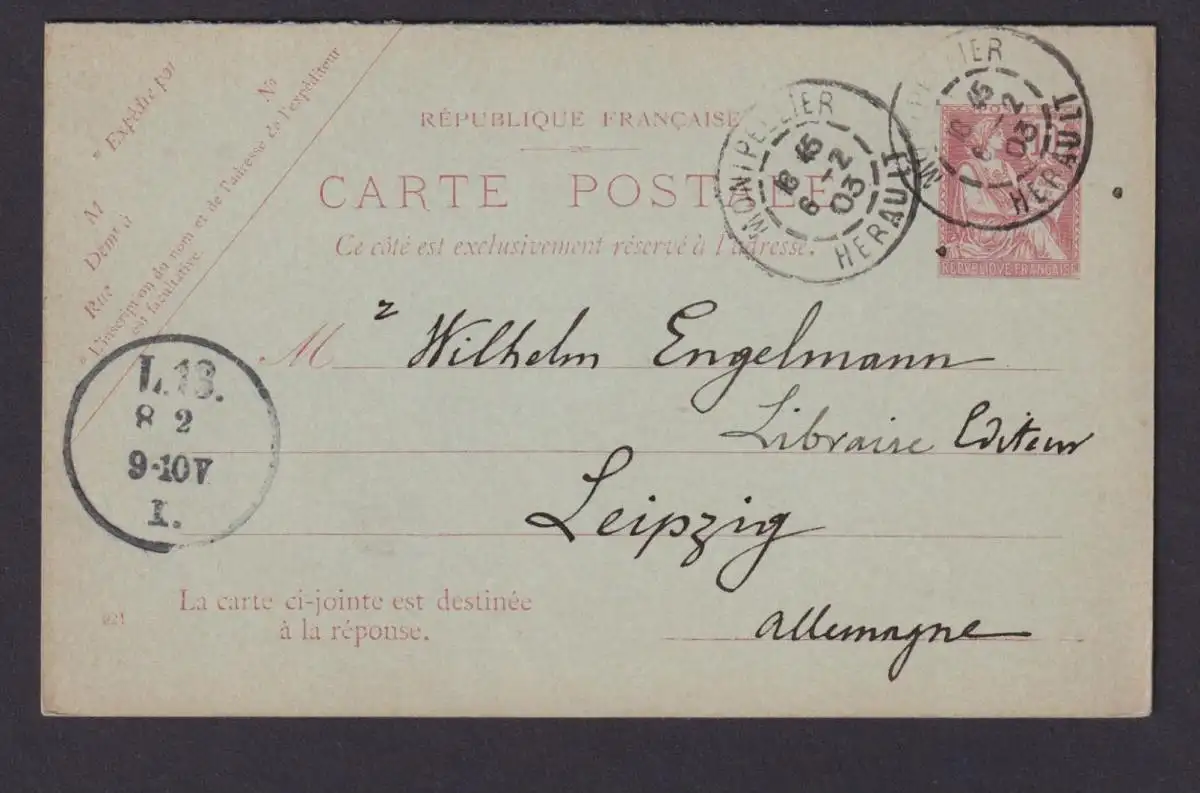 * Expédié par
M
Demt à
Rue
No
* L'inscription du nom et de l'adresse de l'expéditeur
est facultative.
RÉPUBLIQUE FRANÇAISE
CARTE POSTALE
Ce côté est exclusivement réservé à l'adresse.
MONTPELLIER
18 45
6 -2
03
HERAULT
MONTPELLIER
18 45
6 -2
03
HERAULT
POSTES
REPUBLIQUE FRANÇAISE
M r Wilhelm Engelmann
Libraire Editeur
Leipzig
Allemagne
L. 13.
8 2
9-10V
I.
La carte ci-jointe est destinée
à la réponse.
221